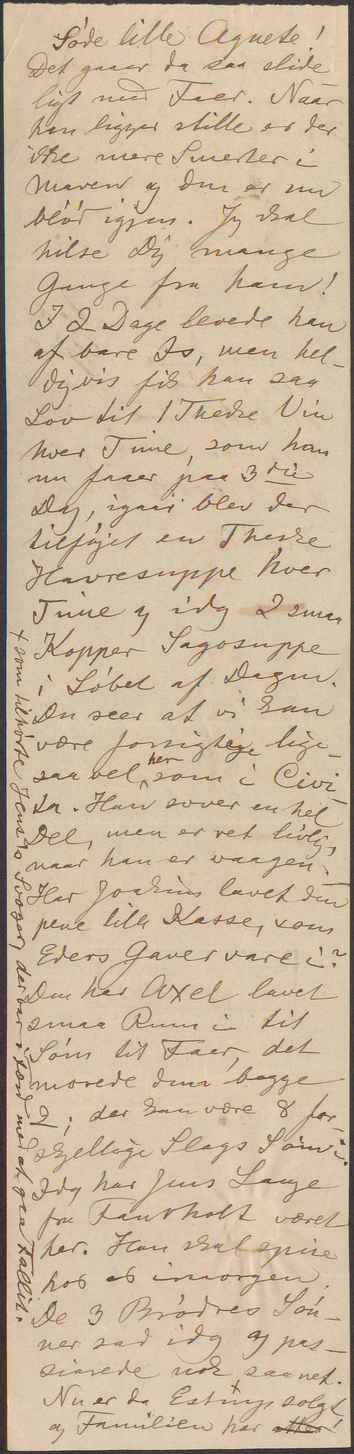 Søde lille Agnete!
Det gaaer da saa slide
ligt med Faer. Naar
han ligger stille er der
ikke mere Smerter i
Maven og den er nu
blød igjen. Jeg skal
hilse Dig mange
Gange fra ham!
I 2 Dage levede han
af bare Is, men hel-
digvis fik han saa
Lov til 1 Theske Vin
hver Time, som han
nu faaer paa 3die
Dag, igaar blev der
tilføjet en Theske
Havresuppe hver
Time og idag 2 smaa
Kopper Sagosuppe
i Løbet af Dagen.
Du seer at vi kan
være forsigtige lige-
saavel her som i Civi-
ta. Han sover en hel
Del, men er ret livlig,
naar han er vaagen.
Har Joakim lavet den
pene lille Kasse, som
Eders Gaver vare i?
Den har Axel lavet
smaa Rum i til
Søm til Faer, det
morede dem begge
2; der kan være 8 for-
skjellige Slags Søm i.
Idag har Jens Lange
fra Faurholt været
her. Han skal spise
hos os imorgen.
De 3 Brødres Søn-
ner sad idag og pas-
siarede nok saa net.
Nu er da Estrup + solgt
og Familien har !
+ som tilhørte Jens's Svoger, der var i Færd med at gaa Fallit.